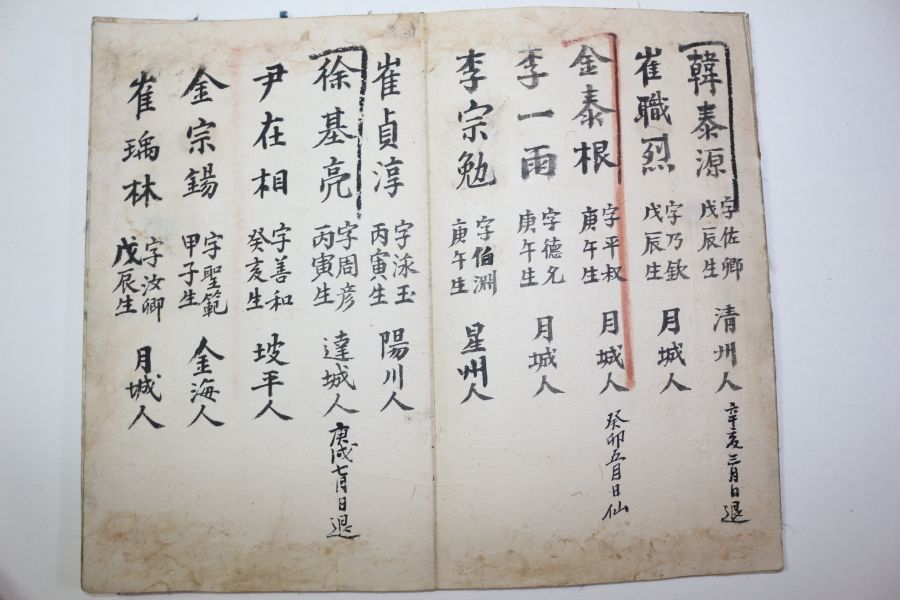 韓泰源 字佐卿 戊辰生 清州人 辛亥三月日退
崔職烈 字乃欽 戊辰生 月城人
金泰根 字平叔 庚午生 月城人 癸卯五月日仙
李一雨 字德允 庚午生 月城人
李宗勉 字伯淵 庚午生 星州人
崔貞淳 字泳玉 丙寅生 陽川人
徐基亮 字周彦 丙寅生 達城人 庚戌七月日退
尹在相 字善和 癸亥生 坡平人
金宗錫 字聖範 甲子生 金海人
崔瑀林 字汝卿 戊辰生 月城人